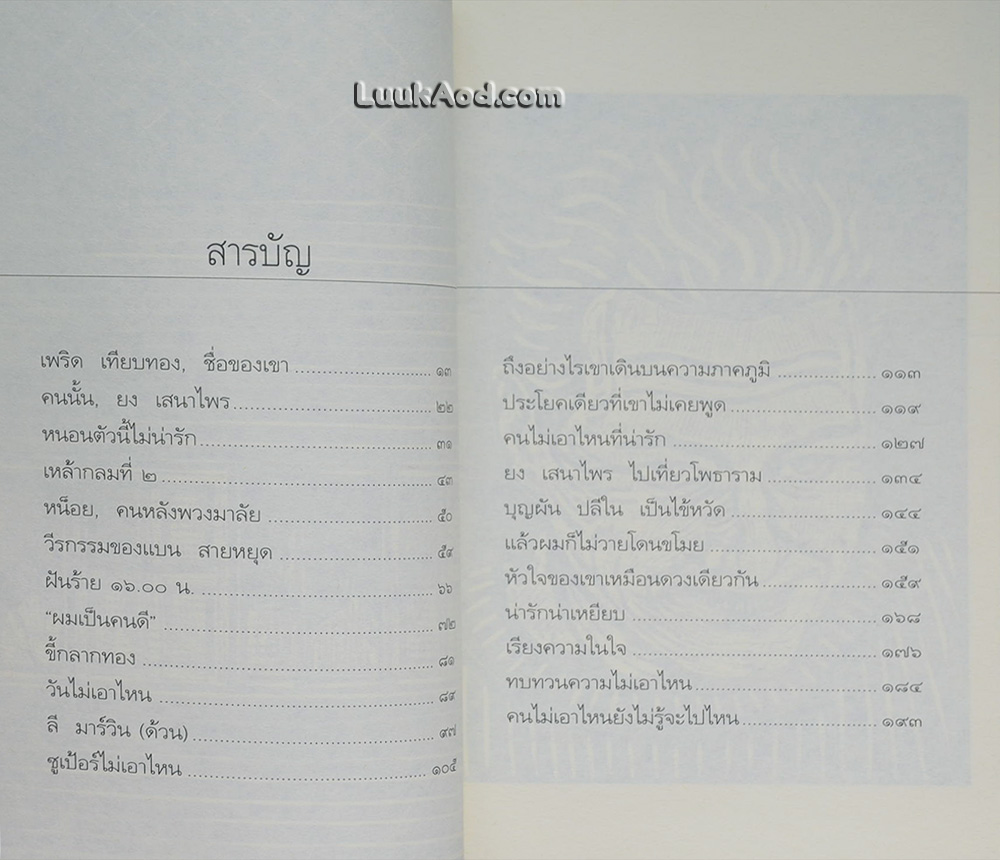 LuukAod.com
สารบัญ
เพริด เทียบทอง, ชื่อของเขา ๑๓
คนนั้น, ยง เสนาไพร ๒๒
หนอนตัวนี้ไม่น่ารัก ๓๑
เหล้ากลมที่ ๒ ๔๓
หน็อย, คนหลังพวงมาลัย ๕๐
วีรกรรมของแบน สายหยุด ๕๙
ฝันร้าย ๑๖.๐๐ น. ๖๖
"ผมเป็นคนดี" ๗๒
ขี้กลากทอง ๘๑
วันไม่เอาไหน ๘๙
ลี มาร์วิน (ด้วน) ๙๗
ซูเป้อร์ไม่เอาไหน ๑๐๕
ถึงอย่างไรเขาเดินบนความภาคภูมิ ๑๑๓
ประโยคเดียวที่เขาไม่เคยพูด ๑๑๙
คนไม่เอาไหนที่น่ารัก ๑๒๗
ยง เสนาไพร ไปเที่ยวโพธาราม ๑๓๔
บุญผัน ปลีใน เป็นไข้หวัด ๑๔๔
แล้วผมก็ไม่วายโดนขโมย ๑๕๑
หัวใจของเขาเหมือนดวงเดียวกัน ๑๕๙
น่ารักน่าเหยียบ ๑๖๘
เรียงความในใจ ๑๗๖
ทบทวนความไม่เอาไหน ๑๘๔
คนไม่เอาไหนยังไม่รู้จะไปไหน ๑๙๓